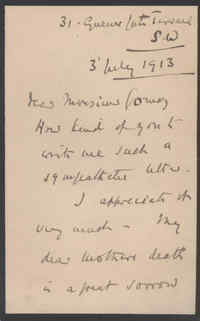 31 - Queens Gate Terrace
S.W
3 July 1913
Dear Monsieur
How kind of you to
write me such a
sympathetic letter.
I appreciate it
very much - My
dear Mothers death
is a great sorrow